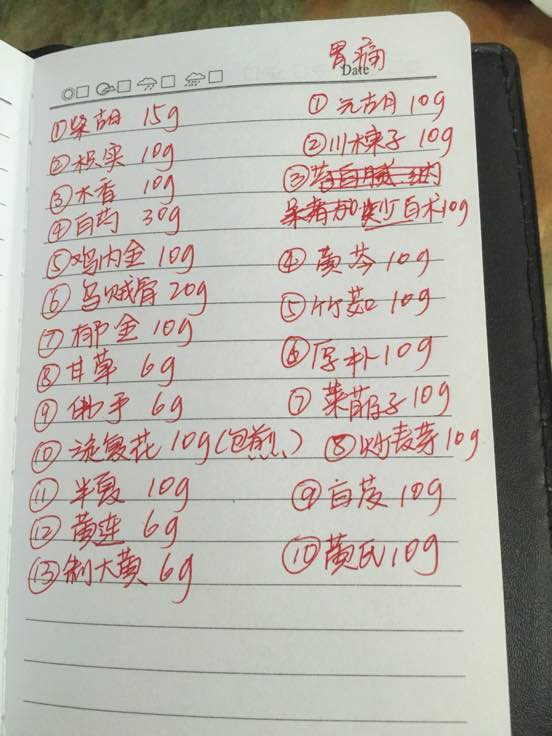 胃痛
Date
①柴胡 15g
②枳实 10g
③木香 10g
④白芍 30g
⑤鸡内金 10g
⑥乌贼骨 20g
⑦郁金 10g
⑧甘草 6g
⑨佛手 6g
⑩旋复花 10g(包煎)
⑪半夏 10g
⑫黄连 6g
⑬制大黄 6g
①元胡 10g
②川楝子 10g
③
炒白术10g
④黄芩 10g
⑤竹茹 10g
⑥厚朴10g
⑦莱菔子10g
⑧炒麦芽10g
⑨白芨 10g
⑩黄氏10g